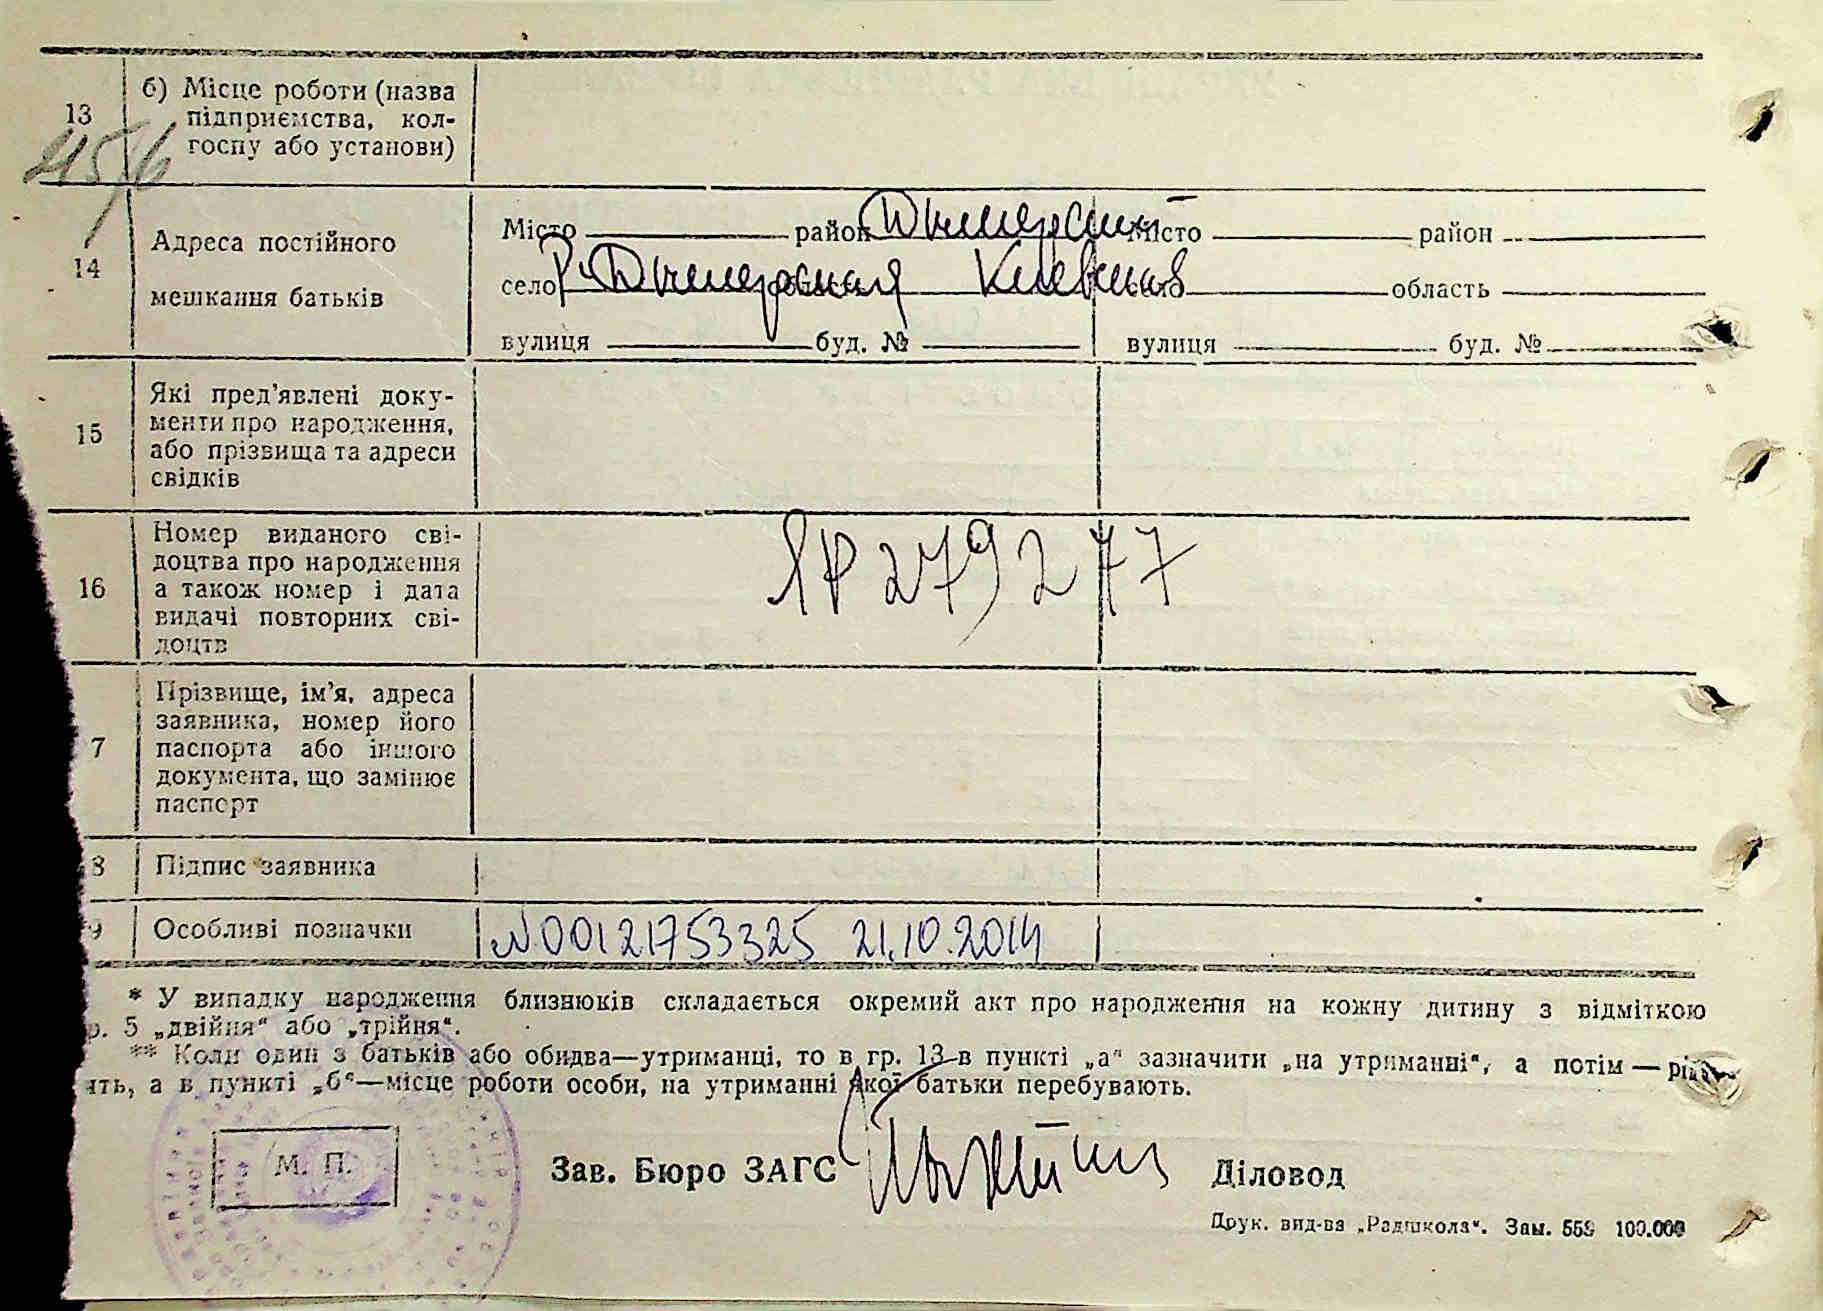 13
б) Місце роботи (назва
підприємства, кол-
госпу або установи)
45/6
14
Адреса постійного
мешкання батьків
Місто район Дымерский Місто район
село Дымерская Киевская область
вулиця буд. № вулиця буд. №
15
Які пред’явлені доку-
менти про народження,
або прізвища та адреси
свідків
16
Номер виданого сві-
доцтва про народження
а також номер і дата
видачі повторних сві-
доцтв
ЯР 279277
7
Прізвище, ім’я, адреса
заявника, номер його
паспорта або іншого
документа, що замінює
паспорт
8
Підпис заявника
9
Особливі позначки
N 00121753325 21.10.2014
* У випадку народження близнюків складається окремий акт про народження на кожну дитину з відміткою
р. 5 „двійня“ або „трійня“.
** Коли один з батьків або обидва—утриманці, то в гр. 13 в пункті „а“ зазначити „на утриманні“, а потім —
ить, а в пункті „б“—місце роботи особи, на утриманні якої батьки перебувають.
М. П.
Зав. Бюро ЗАГС
Діловод
Друк. вид-ва „Радшкола“. Зам. 559 100.000